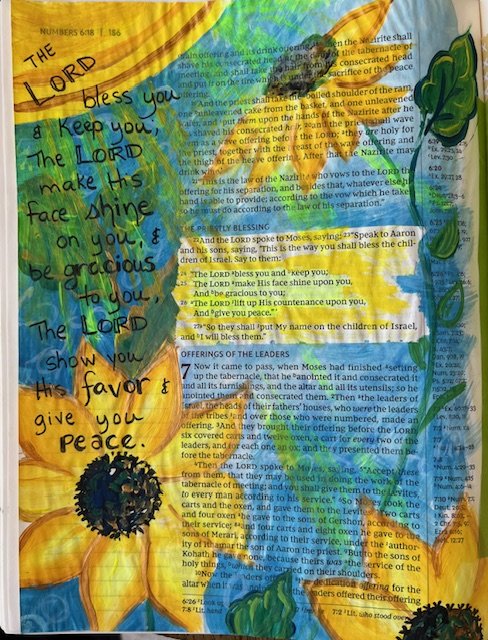 NUMBERS 6:18 | 186
THE
LORD
bless you
& Keep you,
The LORD
make His
face shine
on you, &
be gracious
to you,
The LORD
show you
His favor &
give you
PEACE.
grain offering and its drink offering. Then the Nazirite shall
shave his consecrated head at the door of the tabernacle of
meeting, and shall take the hair from his consecrated head
and put it on the fire which is under the sacrifice of the peace
offering.
And the priest shall take the boiled shoulder of the ram,
one unleavened cake from the basket, and one unleavened
wafer, and put them upon the hands of the Nazirite after he
has shaved his consecrated hair, and the priest shall wave
them as a wave offering before the LORD; they are holy for
the priest, together with the breast of the wave offering and
the thigh of the heave offering. After that the Nazirite may
drink wine.
"This is the law of the Nazirite who vows to the LORD the
offering for his separation, and besides that, whatever else his
hand is able to provide; according to the vow which he takes,
so he must do according to the law of his separation."
THE PRIESTLY BLESSING
22 And the LORD spoke to Moses, saying: 23 "Speak to Aaron
and his sons, saying, 'This is the way you shall bless the chil-
dren of Israel. Say to them:
24 "The LORD bless you and keep you;
25 The LORD make His face shine upon you,
And be gracious to you;
26 The LORD lift up His countenance upon you,
And give you peace." '
27 "So they shall put My name on the children of Israel,
and I will bless them."
OFFERINGS OF THE LEADERS
7 Now it came to pass, when Moses had finished setting
up the tabernacle, that he anointed it and consecrated it
and all its furnishings, and the altar and all its utensils; so he
anointed them and consecrated them. Then the leaders of
Israel, the heads of their fathers' houses, who were the leaders
of the tribes and over those who were numbered, made an
offering. And they brought their offering before the LORD,
six covered carts and twelve oxen, a cart for every two of the
leaders, and for each one an ox; and they presented them
before the tabernacle.
Then the LORD spoke to Moses, saying, "Accept these
from them, that they may be used in doing the work of the
tabernacle of meeting; and you shall give them to the Levites,
to every man according to his service." So Moses took the
carts and the oxen, and gave them to the Levites. Two carts
and four oxen he gave to the sons of Gershon, according to
their service; and four carts and eight oxen he gave to the
sons of Merari, according to their service, under the author-
ity of Ithamar the son of Aaron the priest. But to the sons of
Kohath he gave none, because theirs was the service of the
holy things, which they carried on their shoulders.
Now the leaders offered the dedication offering for the
altar when it was anointed; so the leaders offered their offering